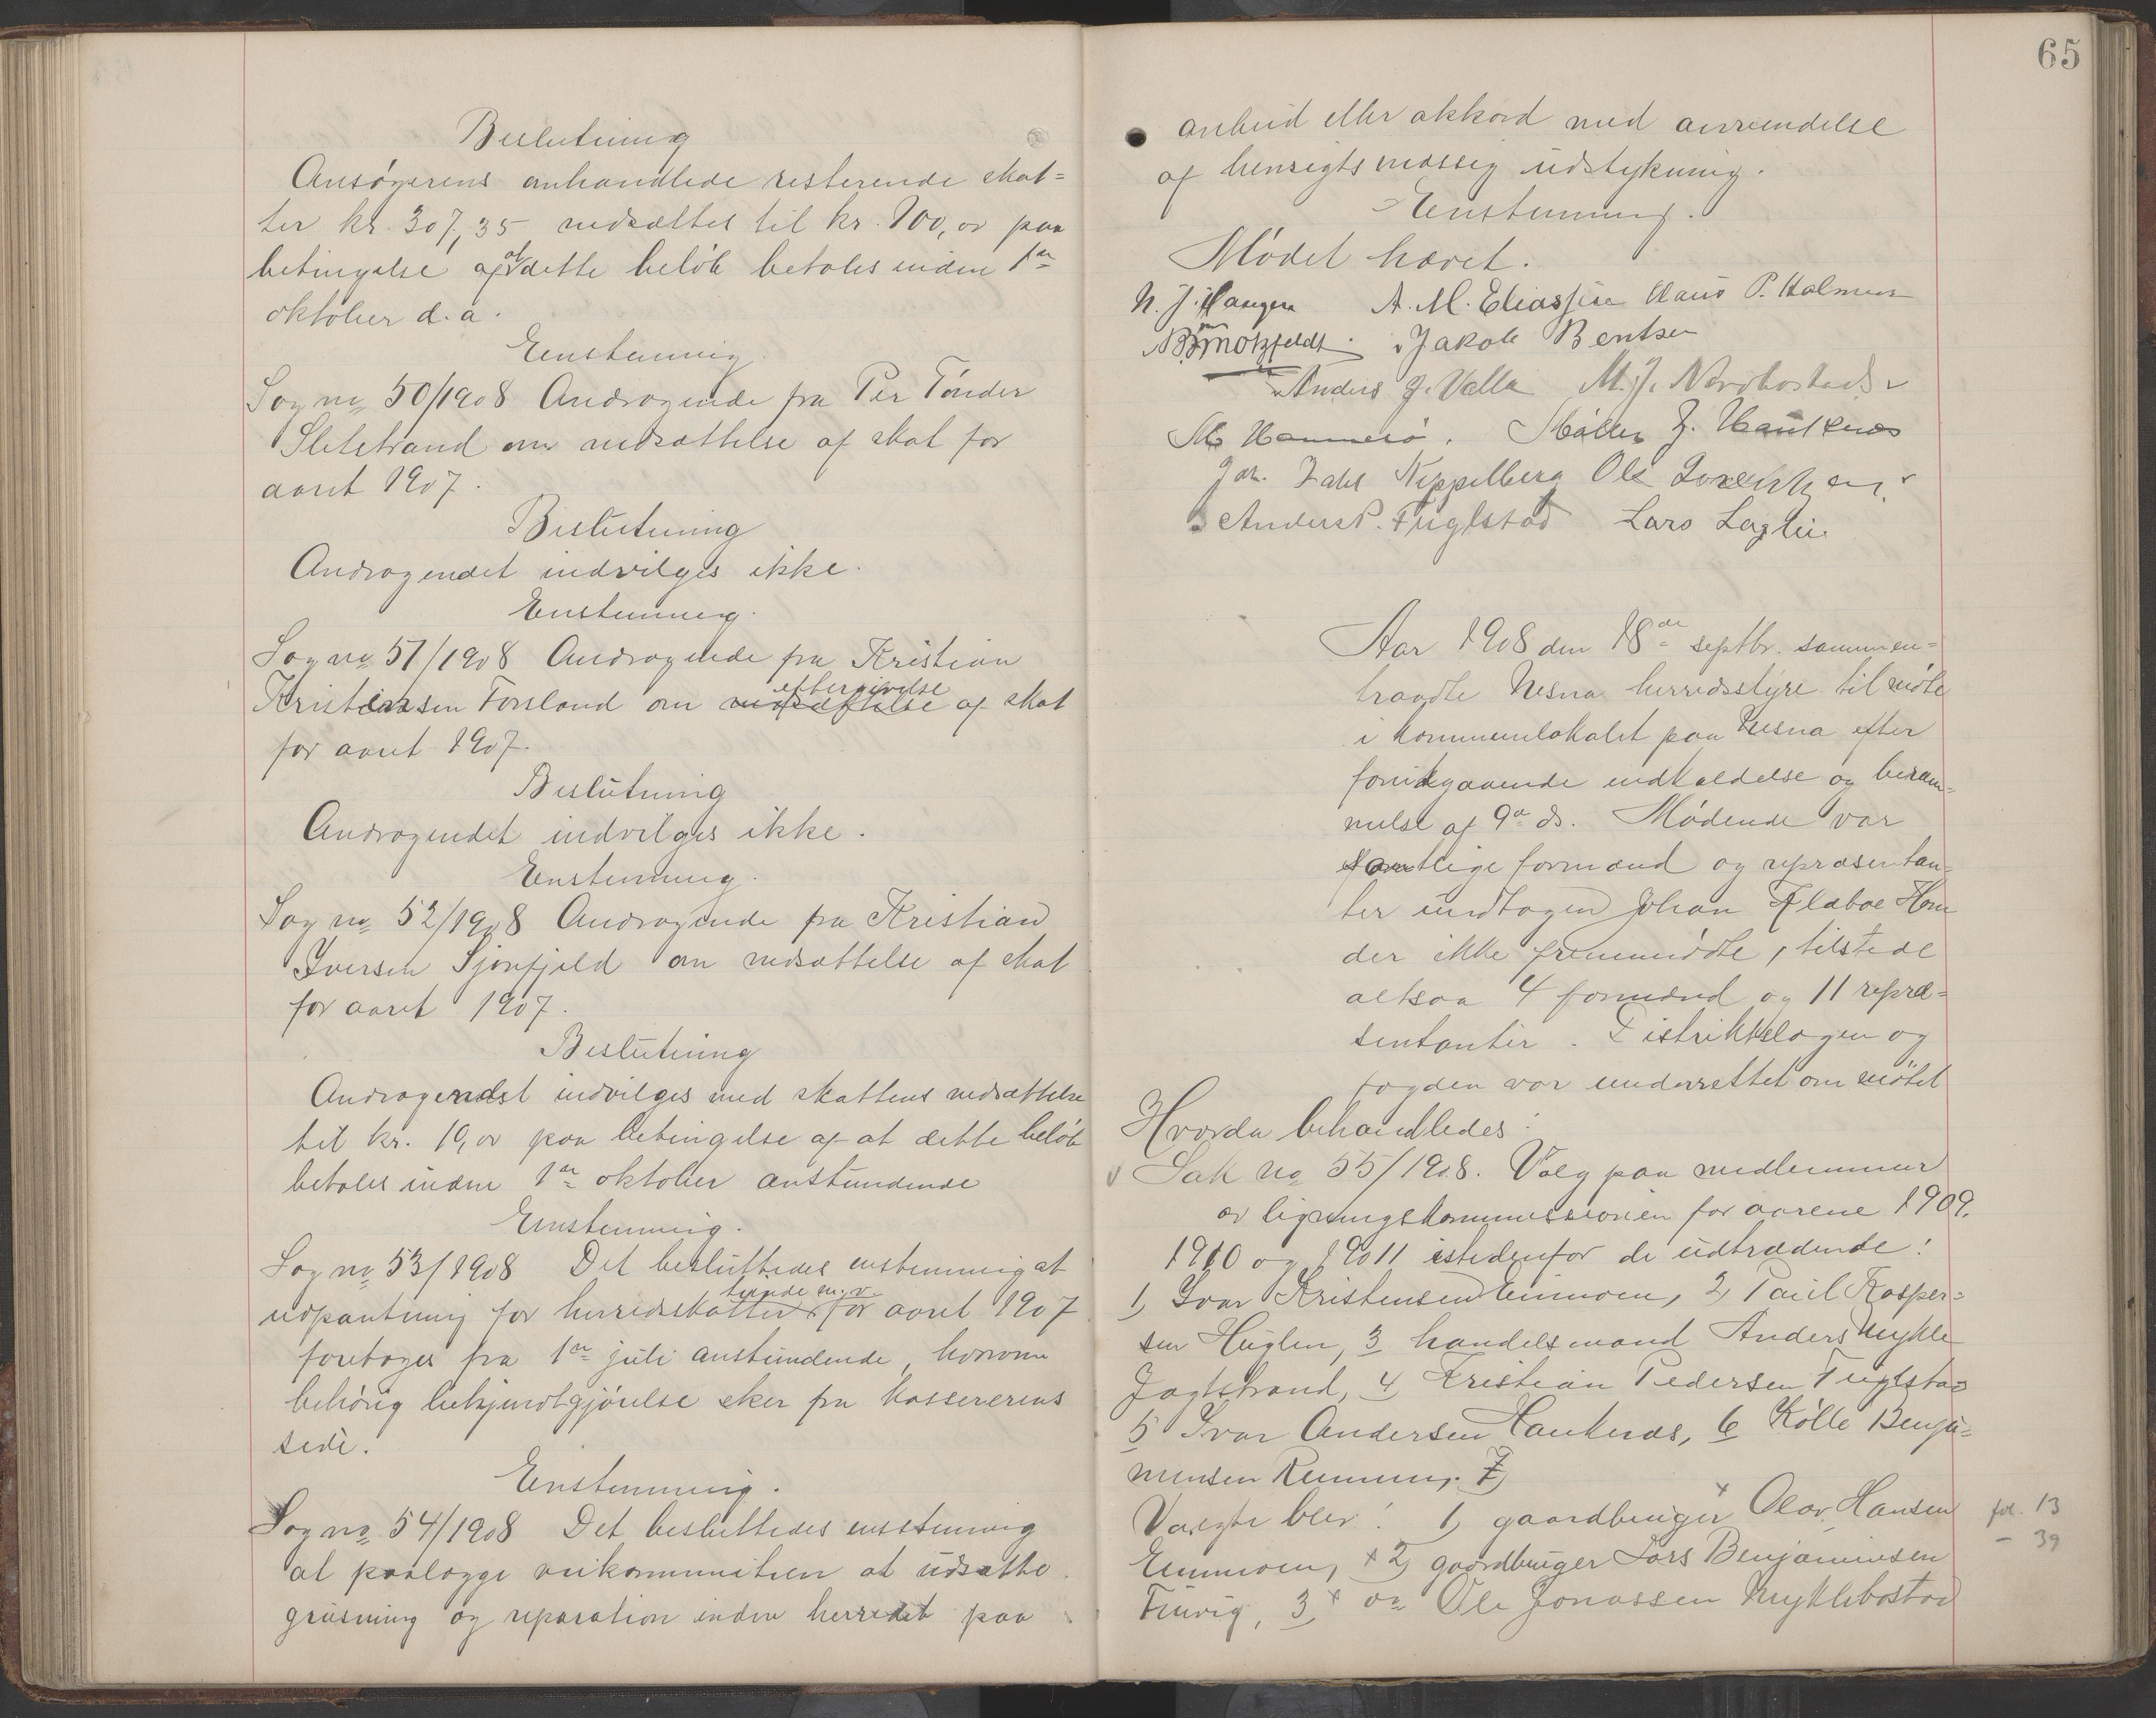 Beslutning
Ansøgerens anhandlede resterende skat-
ter kr. 307,35 nedsættes til kr. 100,00 paa
betingelse af at dette beløb betales inden 1ste
oktober d. a.
Enstemmig.
Sag no 50/1908 Andragende fra Per Tønder
Sletstrand om nedsættelse af skat for
aaret 1907.
Beslutning
Andragendet indvilges ikke.
Enstemmig.
Sag no 51/1908 Andragende fra Kristian
Kristensen Forsland om nedsættelse eftergivelse af skat
for aaret 1907.
Beslutning
Andragendet indvilges ikke.
Enstemmig.
Sag no 52/1908 Andragende fra Kristian
Iversen Sjonfjeld om nedsættelse af skat
for aaret 1907.
Beslutning
Andragendet indvilges med skattens nedsættelse
til kr. 10,00 paa betingelse af at dette beløb
betales inden 1ste oktober anstundende
Enstemmig.
Sag no 53/1908 Det besluttedes enstemmig at
udpantning for herredsskatter tiende m. v. for aaret 1907
foretages fra 1ste juli anstundende, hvorom
behørig bekjendtgjørelse sker fra kassererens
side.
Enstemmig.
Sag no 54/1908 Det besluttedes enstemmig
at paalægge veikommitteen at udsætte
grusning og reparation inden herredet paa
65
arbeid eller akkord med anvendelse
af hensigtsmæssig udstykning.
Enstemmig.
Mødet hævet.
N. J. Haagen A. M. Eliassen Claus P. Halmøen
Motzfeldt. Jakob Bentsen
Anders J. Valla M. J. Nordbostad
M Hammerø. Møller J. Hauknes
Joh. Zahl Neppelberg Ole Lorentzen.
Anders P. Fuglstad Lars Laglii.
Aar 1908 den 18de septbr. sammen-
traadte Nesna herredsstyre til møte
i kommunelokalet paa Nesna efter
forutgaaende indkaldelse og beram-
melse af 9de ds. Mødende var
samtlige formænd og repræsentan-
ter undtagen Johan Flaboe Horn
der ikke fremmødte, tilstede
altsaa 4 formænd og 11 repræ-
sentanter. Distriktslægen og
fogden var underrettet om møtet
Hvorda behandledes:
Sak no 55/1908. Valg paa medlemmer
av ligningskommissionen for aarene 1909,
1910 og 1911 istedenfor de udtrædende:
1, Ivar Kristensen Einmoen, 2, Paul Kasper-
sen Huglen, 3 handelsmand Anders Mykle
Jagtstrand, 4 Kristian Pedersen Fuglstad
5 Ivar Andersen Hauknes, 6 Kølle Benja-
minsen Remmen, 7,
Valgte blev: 1, gaardbruger Olav Hansen
Einmoen, 2, gaardbruger Lars Benjaminsen
Finvig, 3, do Ole Jonassen Myklebostad
fol. 13
– 39